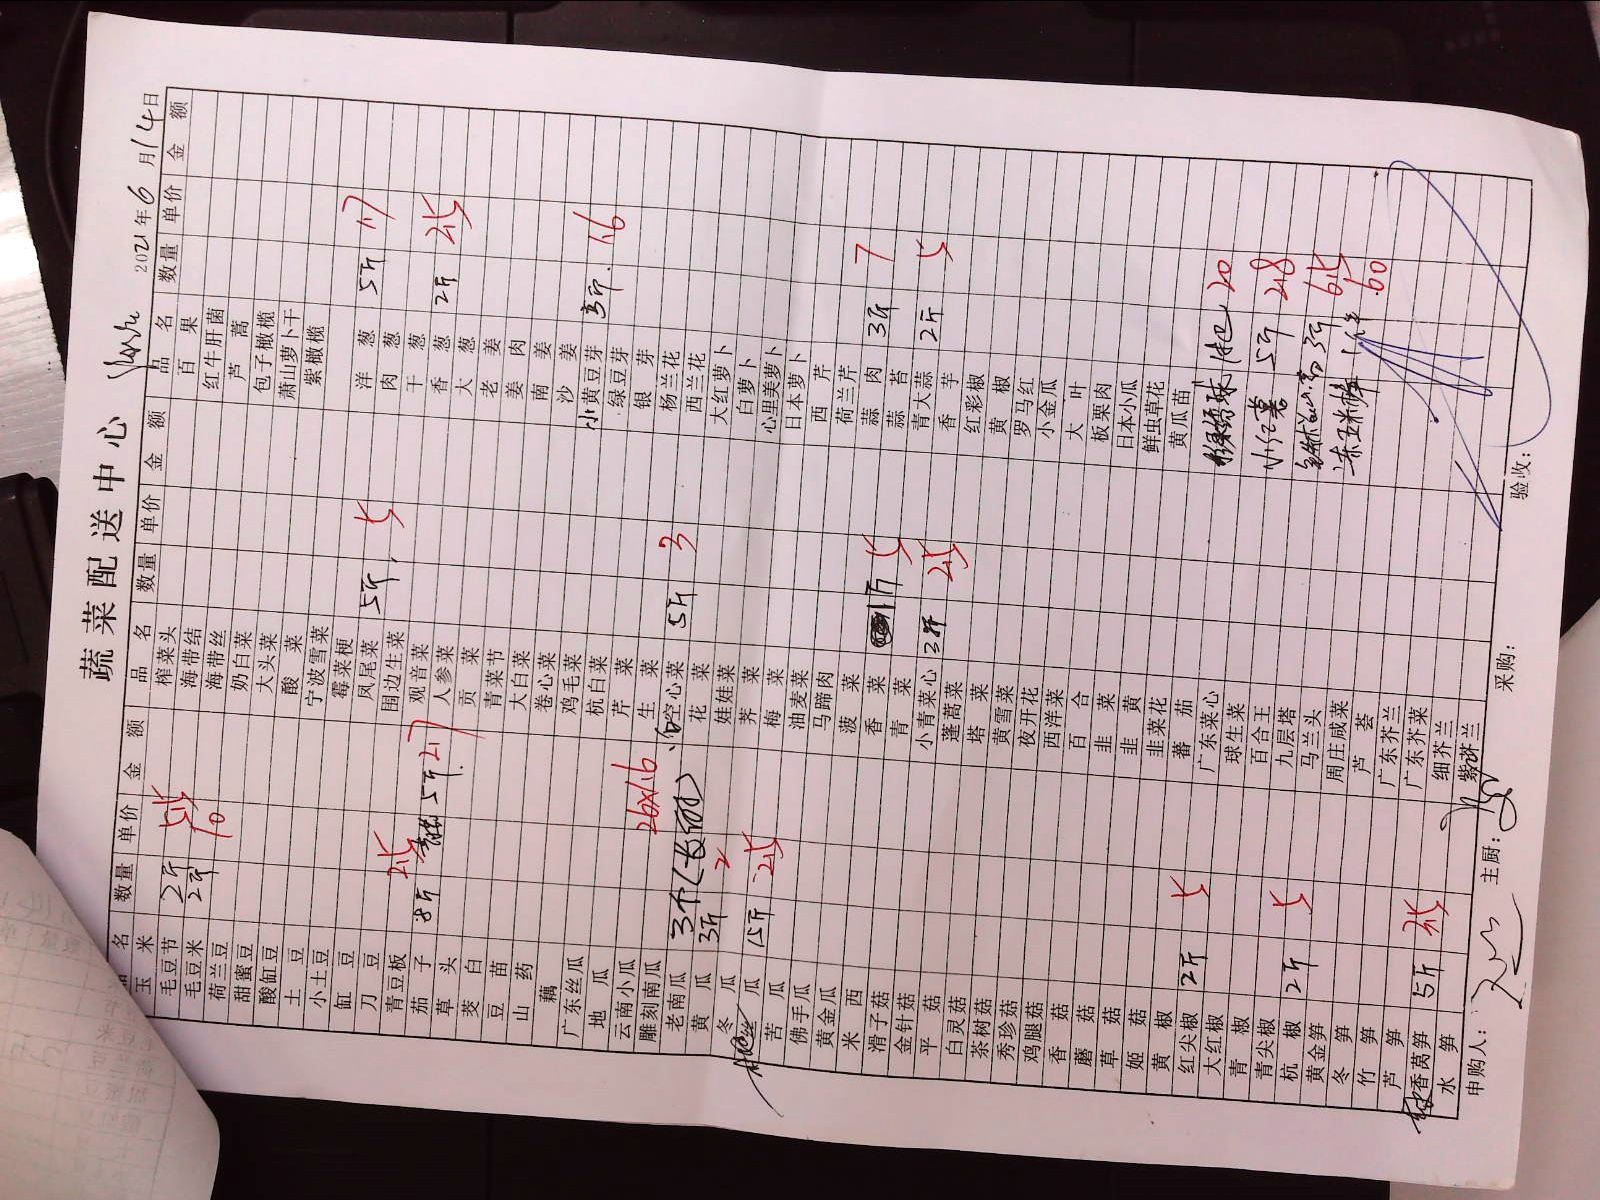 蔬菜配送中心
2021年6月14日
品名 数量 单价 金额 品名 数量 单价 金额 品名 数量 单价 金额
玉米 榨菜头 百果
毛豆节 2斤 海带结 红牛肝菌
毛豆米 2斤 10 海带丝 芦蒿
荷兰豆 奶白菜 包子橄榄
甜蜜豆 大头菜 萧山萝卜干
酸缸豆 酸菜 紫橄榄
土豆 宁波雪菜
小土豆 霉菜梗 洋葱 5斤 1.7
缸豆 凤尾菜 5斤 5 肉葱
刀豆 围边生菜 干葱
青豆板 观音菜 香葱 2斤 4.5
茄子 8斤 2.5 人参菜 大葱
草头 5斤 2.7 贡菜 老姜
茭白 青菜节 姜肉
豆苗 大白菜 南姜
山药 卷心菜 沙姜
藕 鸡毛菜 小黄豆芽 3斤 1.6
广东丝瓜 杭白菜 绿豆芽
地瓜 芹菜 银芽
云南小瓜 生菜 杨兰花
雕刻南瓜 空心菜 5斤 3 西兰花
老南瓜 3个 26×1.6 花菜 大红萝卜
黄瓜 3斤 2 娃娃菜 白萝卜
冬瓜 荠菜 心里美萝卜
瓜 15斤 2.5 梅菜 日本萝卜
苦瓜 油麦菜 西芹
佛手瓜 马蹄肉 荷兰芹
黄金瓜 菠菜 蒜肉 3斤 7
米西 香菜 1斤 5 蒜苔
滑子菇 青菜 青大蒜 2斤 5
金针菇 小青菜心 3斤 4.5 香芋
平菇 蓬蒿菜 红彩椒
白灵菇 塔菜 黄椒
茶树菇 黄雪菜 罗马红
秀珍菇 夜开花 小金瓜
鸡腿菇 西洋菜 大叶
香菇 百合 板栗肉
蘑菇 韭菜 日本小瓜
草菇 韭黄 鲜虫草花
姬菇 韭菜花 黄瓜苗
黄椒 蕃茄
红尖椒 2斤 5 广东菜心 20
大红椒 球生菜
青椒 百合王 小红薯 5斤 2.8
青尖椒 九层塔
杭椒 2斤 5 马兰头 3斤 6.5
黄金笋 周庄咸菜
冬笋 芦荟 60
竹笋 广东芥兰
芦笋 广东芥菜
香莴笋 5斤 3.5 细芥兰
水笋 紫芥兰
申购人： 主厨： 采购： 验收：